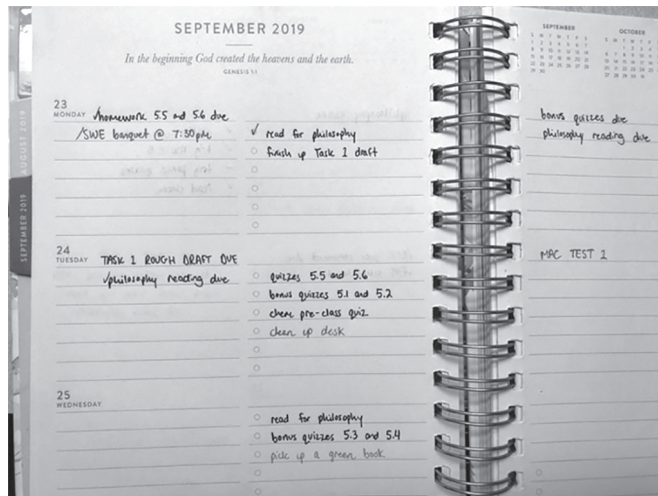 SEPTEMBER 2019
In the beginning God created the heavens and the earth.
GENESIS 1:1
AUGUST 2019
SEPTEMBER 2019
23
MONDAY
homework 5.5 and 5.6 due
SWE banquet @ 7:30pm
✓ read for philosophy
finish up Task 1 draft
24
TUESDAY
TASK 1 ROUGH DRAFT DUE
✓philosophy reading due
quizzes 5.5 and 5.6
bonus quizzes 5.1 and 5.2
chem pre-class quiz
clean up desk
25
WEDNESDAY
read for philosophy
bonus quizzes 5.3 and 5.4
pick up a green book
SEPTEMBER
OCTOBER
bonus quizzes due
philosophy reading due
MAC TEST 2